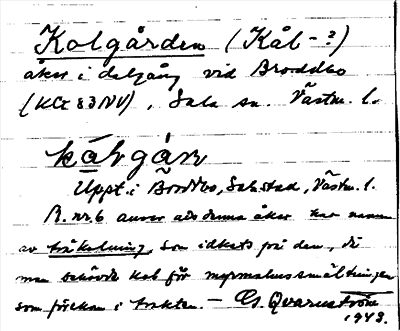 Kolgården (Kål-?)
åker i delgång vid Broddbo
(KCt 83NV), Sala sn. Västm. l.
kålgán
Uppt. i Broddbo, Sala stad, Västm. l.
B. nr 6 anser att denna åker har namn
av träkolning, som idkats på den, då
man behövde kol för myrmalmssmältningen
som förekom i trakten. - G. Qvarnström
1943.